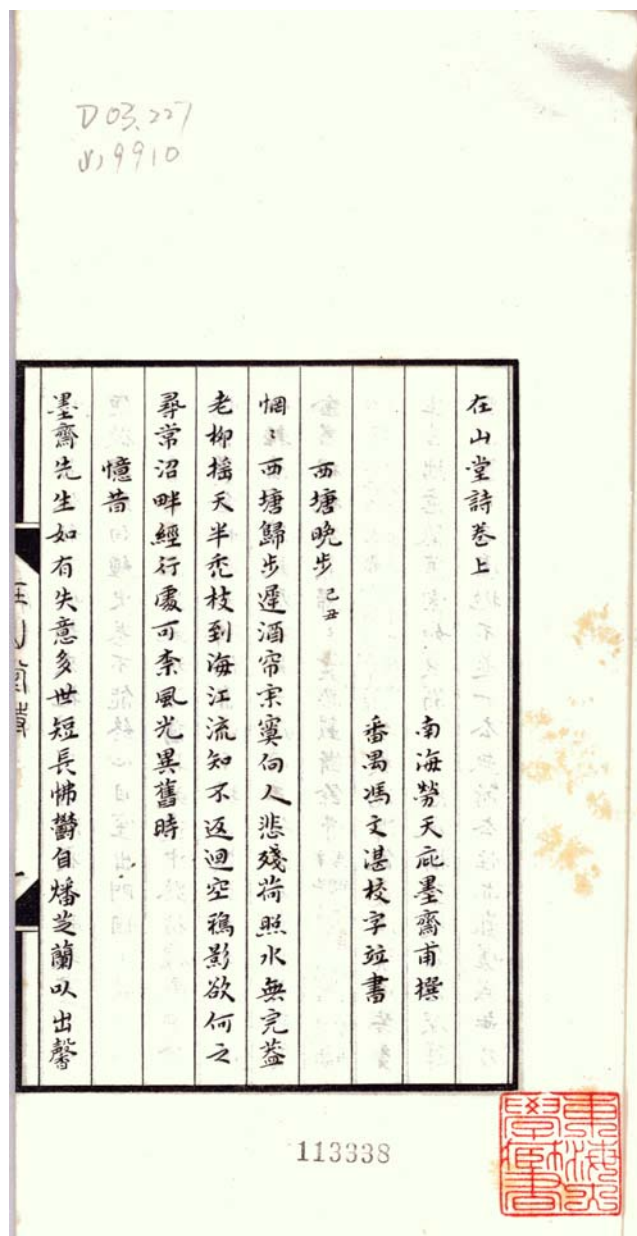 D03.227
9910
在山堂詩卷上
南海勞天庇墨齋甫撰
番禺馮文湛校字竝書
西塘晚步 己丑
惘〻西塘歸步遲酒帘宋寞向人悲殘荷照水無完蓋
老柳搖天半禿枝到海江流知不返迴空鴉影欲何之
尋常沼畔經行處可柰風光異舊時
憶昔
墨齋先生如有失意多世短長怫鬱自燔芝蘭以出馨
113338
東海大學圖書